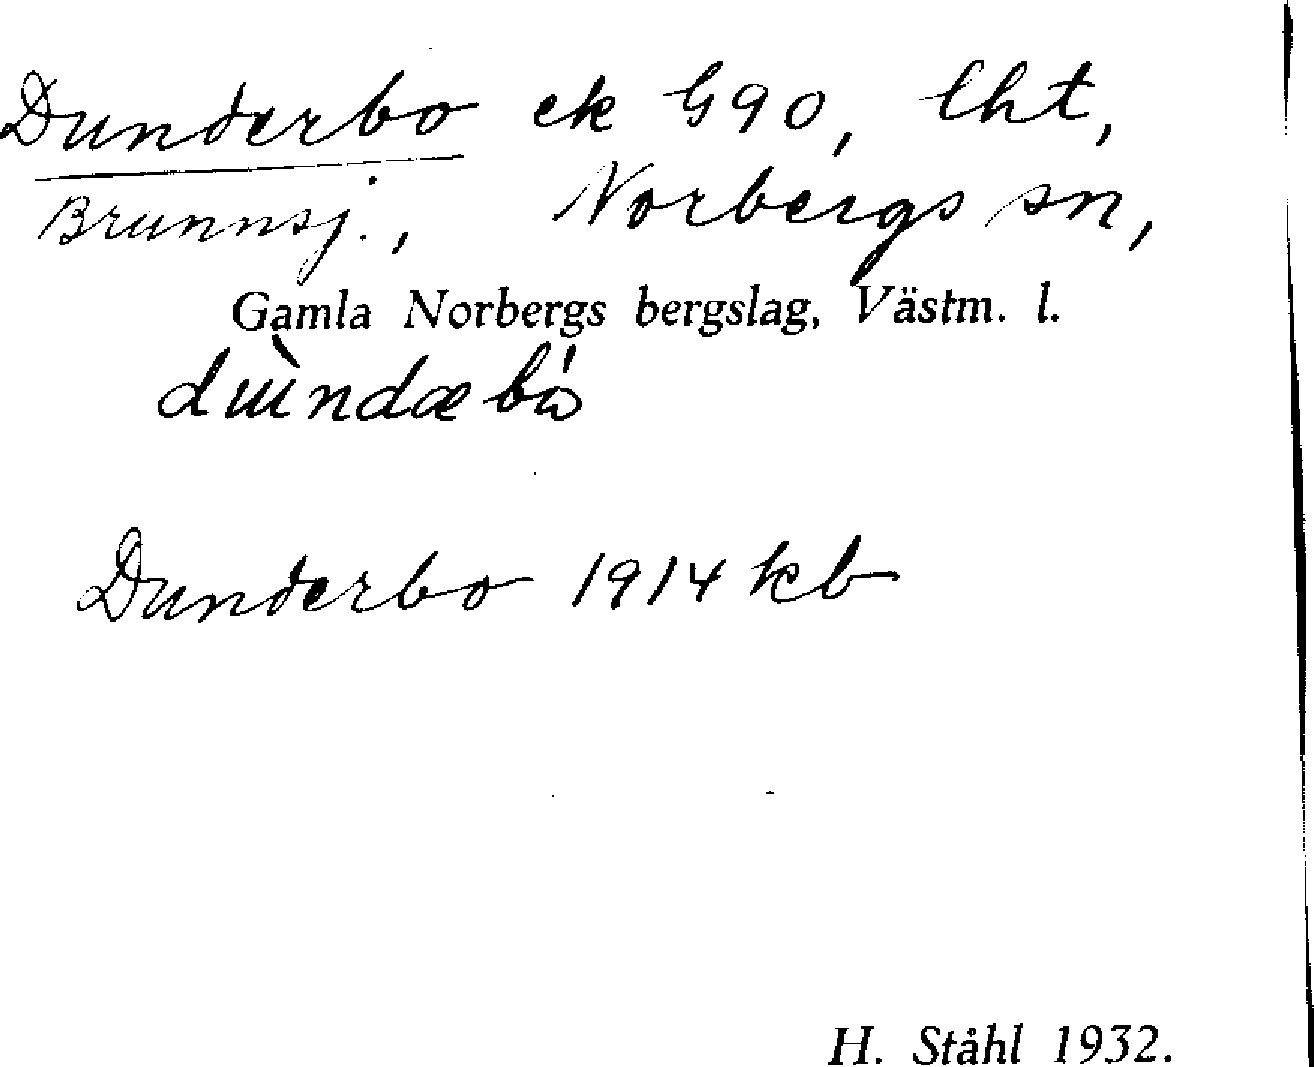 Dunderbo ek G90, lht,
Brunnsj., Norbergs sn,
Gamla Norbergs bergslag, Västm. l.
Dunderbo 1914 kb
H. Ståhl 1932.